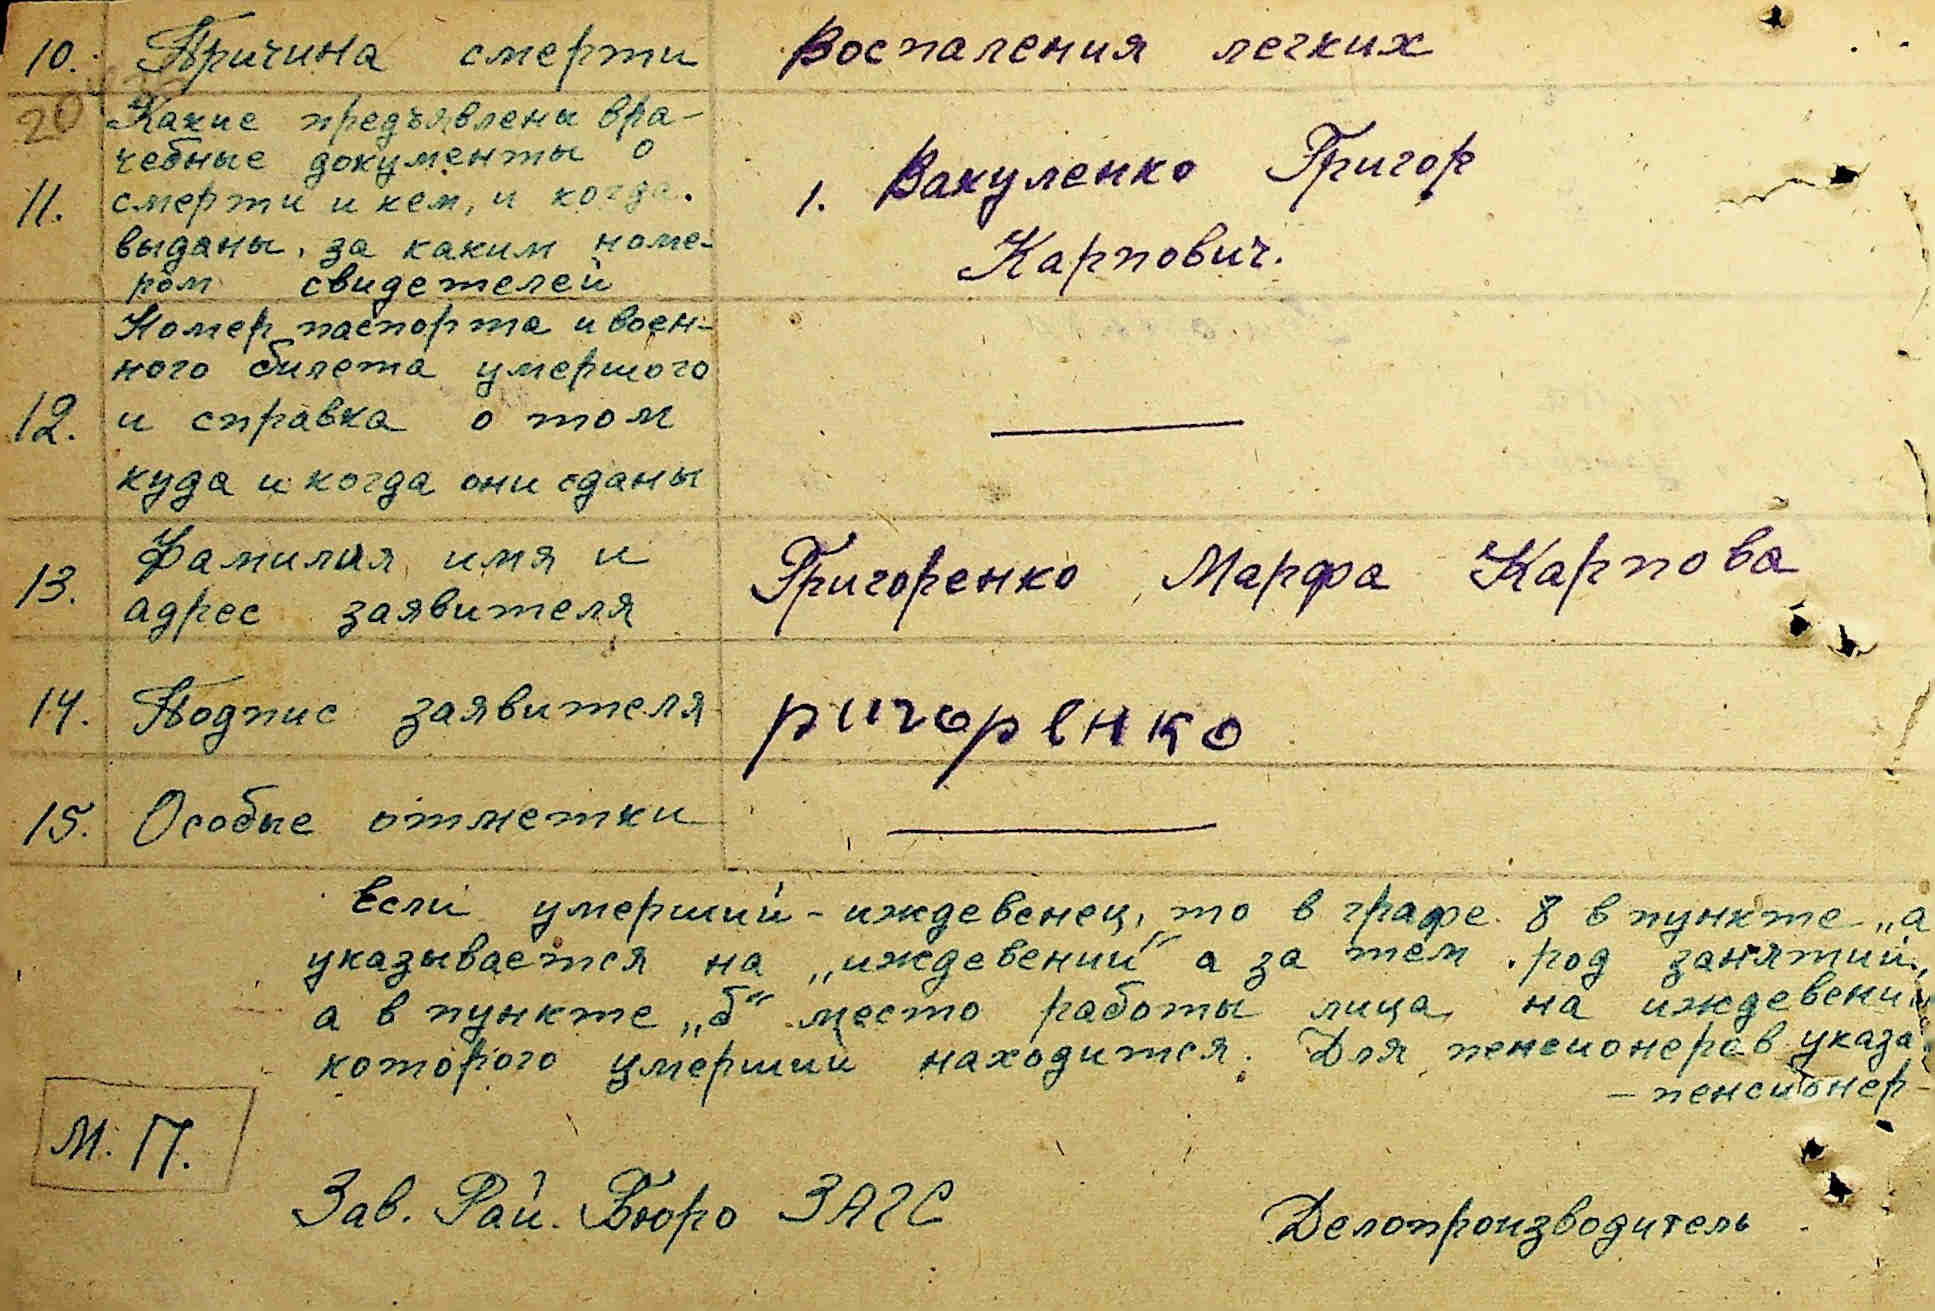 10. Причина смерти Воспаления легких
20
Какие предъявлены вра-
чебные документы о
11. смерти и кем, и когда.
выданы, за каким номе-
ром свидетелей
1. Вакуленко Григор
Карпович.
Номер паспорта и воен-
ного билета умершого
12. и справка о том
куда и когда они сданы
13. Фамилия имя и
адрес заявителя
Григоренко Марфа Карпова
14. Подпис заявителя ригоренко
15. Особые отметки
Если умерший - иждевенец, то в графе 8 в пункте „а
указывается на „иждевении" а за тем род занятий,
а в пункте „б" место работы лица на иждевени
которого умерший находится. Для пенсионеров указа
- пенсионер -
М. П.
Зав. Рай. Бюро ЗАГС Делопроизводитель